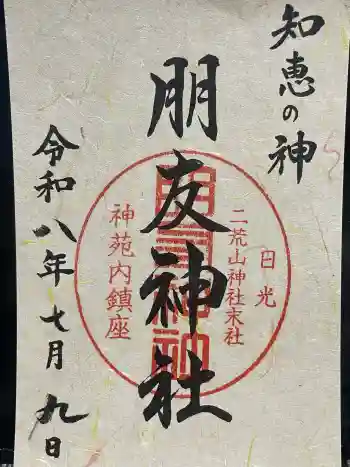 知恵の神
朋友神社
日光
二荒山神社末社
神苑内鎮座
朋友神社
令和八年七月九日